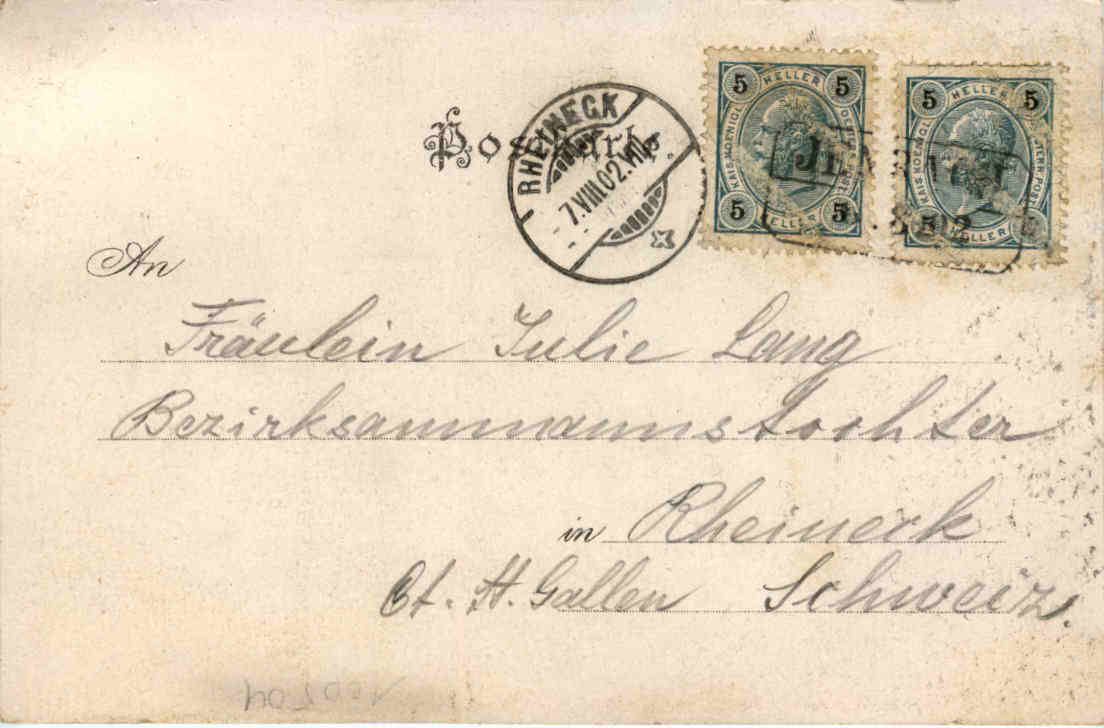 Postkarte
RHEINECK
7.VIII.02.VII
5 HELLER 5
KAIS.KOENIGL.
5 HELLER 5
5 HELLER 5
KAIS.KOENIGL. OESTERR.POST
5 HELLER
An
Fräulein Julie Lang
Bezirksammannstochter
in Rheineck
Ct. St. Gallen Schweiz.